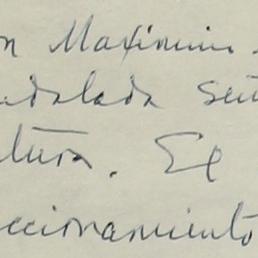 on Maximin
ndalada seu
tura. Ex
ccionamiento